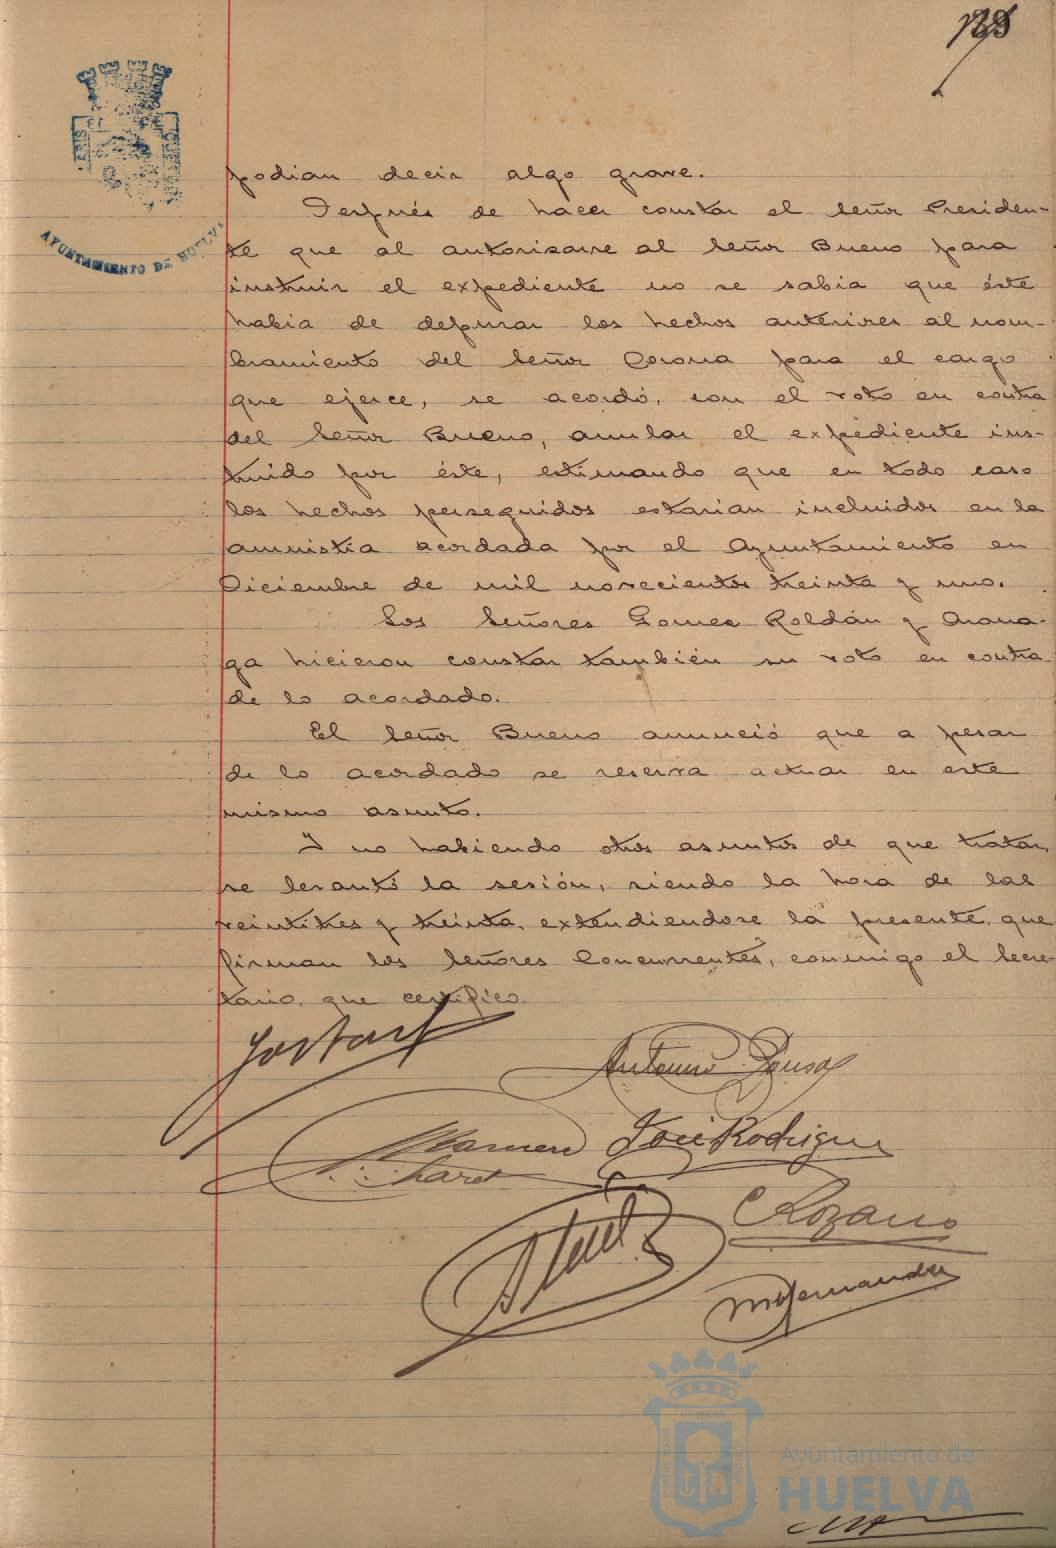 podian decir algo grave.
Después de hacer constar el Señor Presiden-
te que al autorizarse al Señor Bueno para
instruir el expediente no se sabia que éste
habia de depurar los hechos anteriores al nom-
bramiento del Señor Corona para el cargo
que ejerce, se acordó, con el voto en contra
del Señor Bueno, anular el expediente ins-
truido por éste, estimando que en todo caso
los hechos perseguidos estarian incluidos en la
amnistía acordada por el Ayuntamiento en
Diciembre de mil novecientos treinta y uno.
Los Señores Gomez Roldán y
hicieron constar también su voto en contra
de lo acordado.
El Señor Bueno anunció que a pesar
de lo acordado se reserva actuar en este
mismo asunto.
Y no habiendo otros asuntos de que tratar,
se levantó la sesión, siendo la hora de las
veintitres y treinta, extendiendose la presente, que
firman los Señores Concurrentes, conmigo el Secre-
tario, que certifico.
AYUNTAMIENTO DE HUELVA
Antonio Pousa
José Rodriguez
C Rozano
M Hernandez
Ayuntamiento de
HUELVA